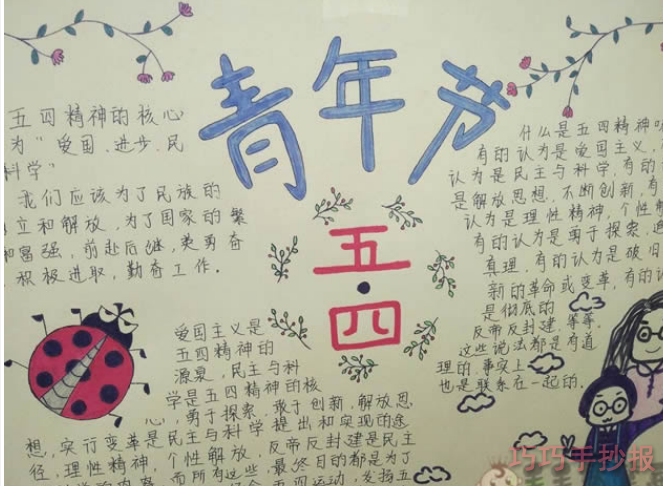 青年节
五·四
五四精神的核心
为“爱国.进步.民
科学”
我们应该为了民族的
立和解放,为了国家的繁
和富强,前赴后继,英勇奋
.积极进取,勤奋工作.
什么是五四精神
有的认为是爱国主义,
认为是民主与科学,有的
是解放思想.不断创新,有
认为是理性精神,个性解
有的认为是勇于探索,追
真理.有的认为是破旧
新的革命或变革,有的认
是彻底的
反帝反封建,等等.
这些说法都是有道
理的,事实上
也是联系在一起的.
爱国主义是
五四精神的
源泉,民主与科
学是五四精神的核
心,勇于探索.敢于创新,解放思
想,实行变革是民主与科学提出和实现的途
径,理性精神,个性解放,反帝反封建是民主
而所有这些,最终目的都是为了
五四运动,发扬五
巧巧手抄报